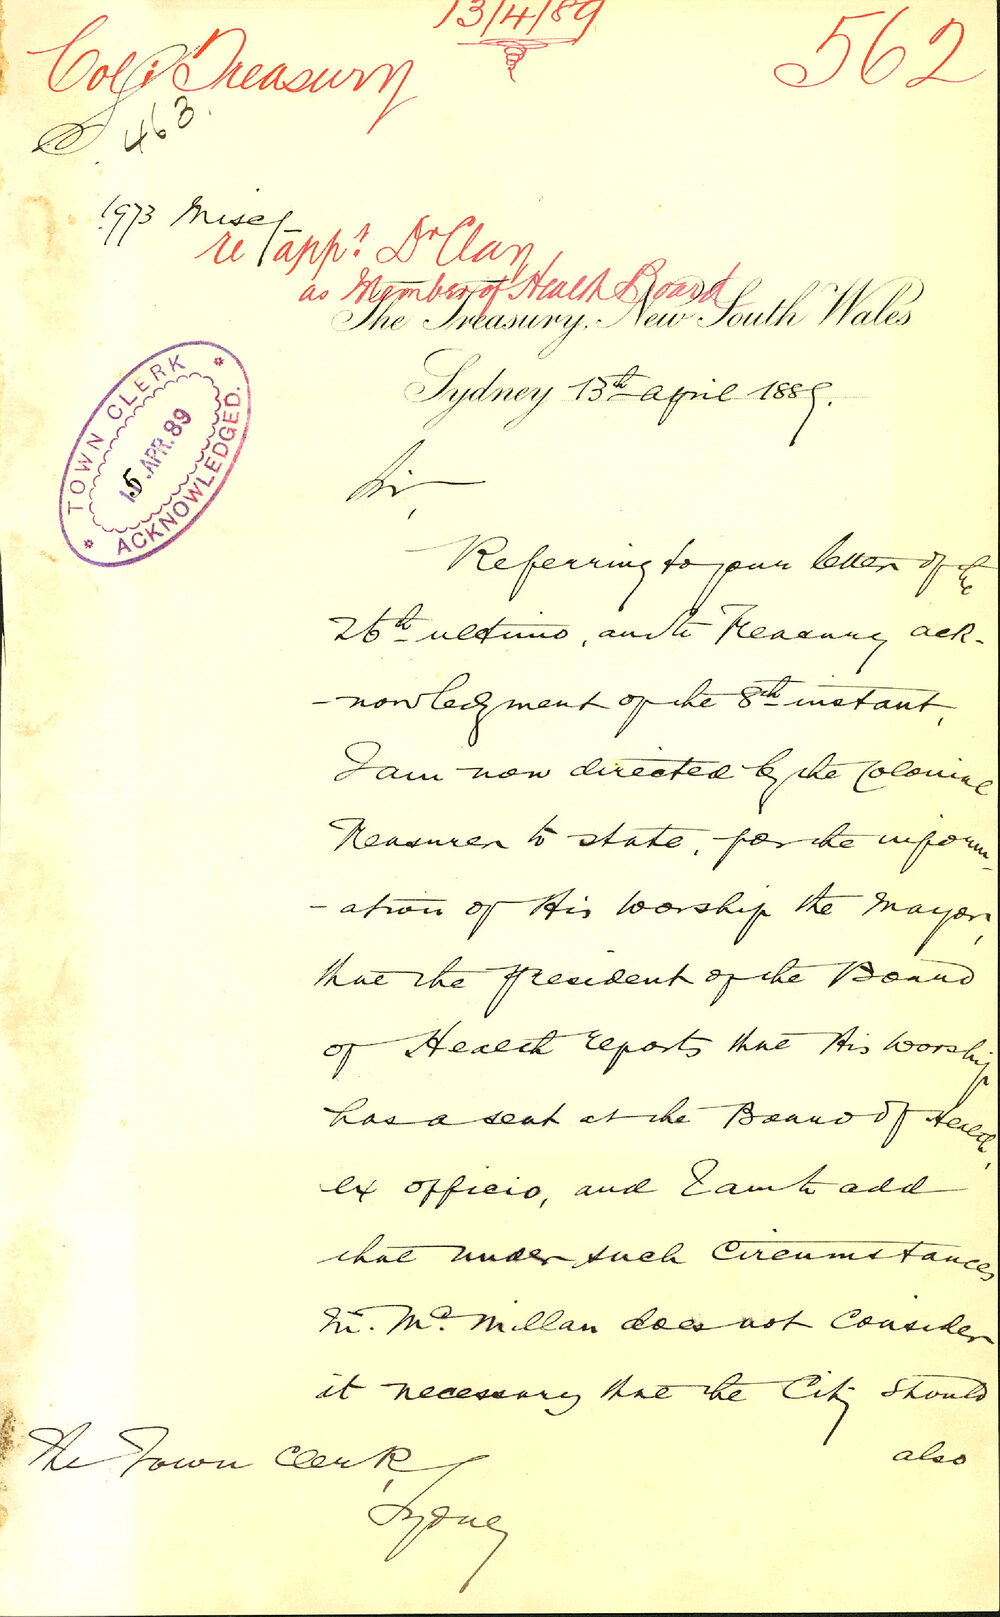 13/4/89
562
Col: Treasury
463.
1973 Misc
re app.t Dr Clay
as Member of Health Board
The Treasury, New South Wales
Sydney 13th April 1889.
TOWN CLERK
15 APR. 89
ACKNOWLEDGED.
Sir,
Referring to your letter of the
26th ultimo, and to Treasury ack-
-nowledgment of the 8th instant,
I am now directed by the Colonial
Treasurer to state, for the inform-
-ation of His Worship the Mayor,
that the President of the Board
of Health reports that His Worship
has a seat at the Board of Health,
ex officio, and I am to add
that under such circumstances
Mr. McMillan does not consider
it necessary that the City should
also
The Town Clerk,
Sydney